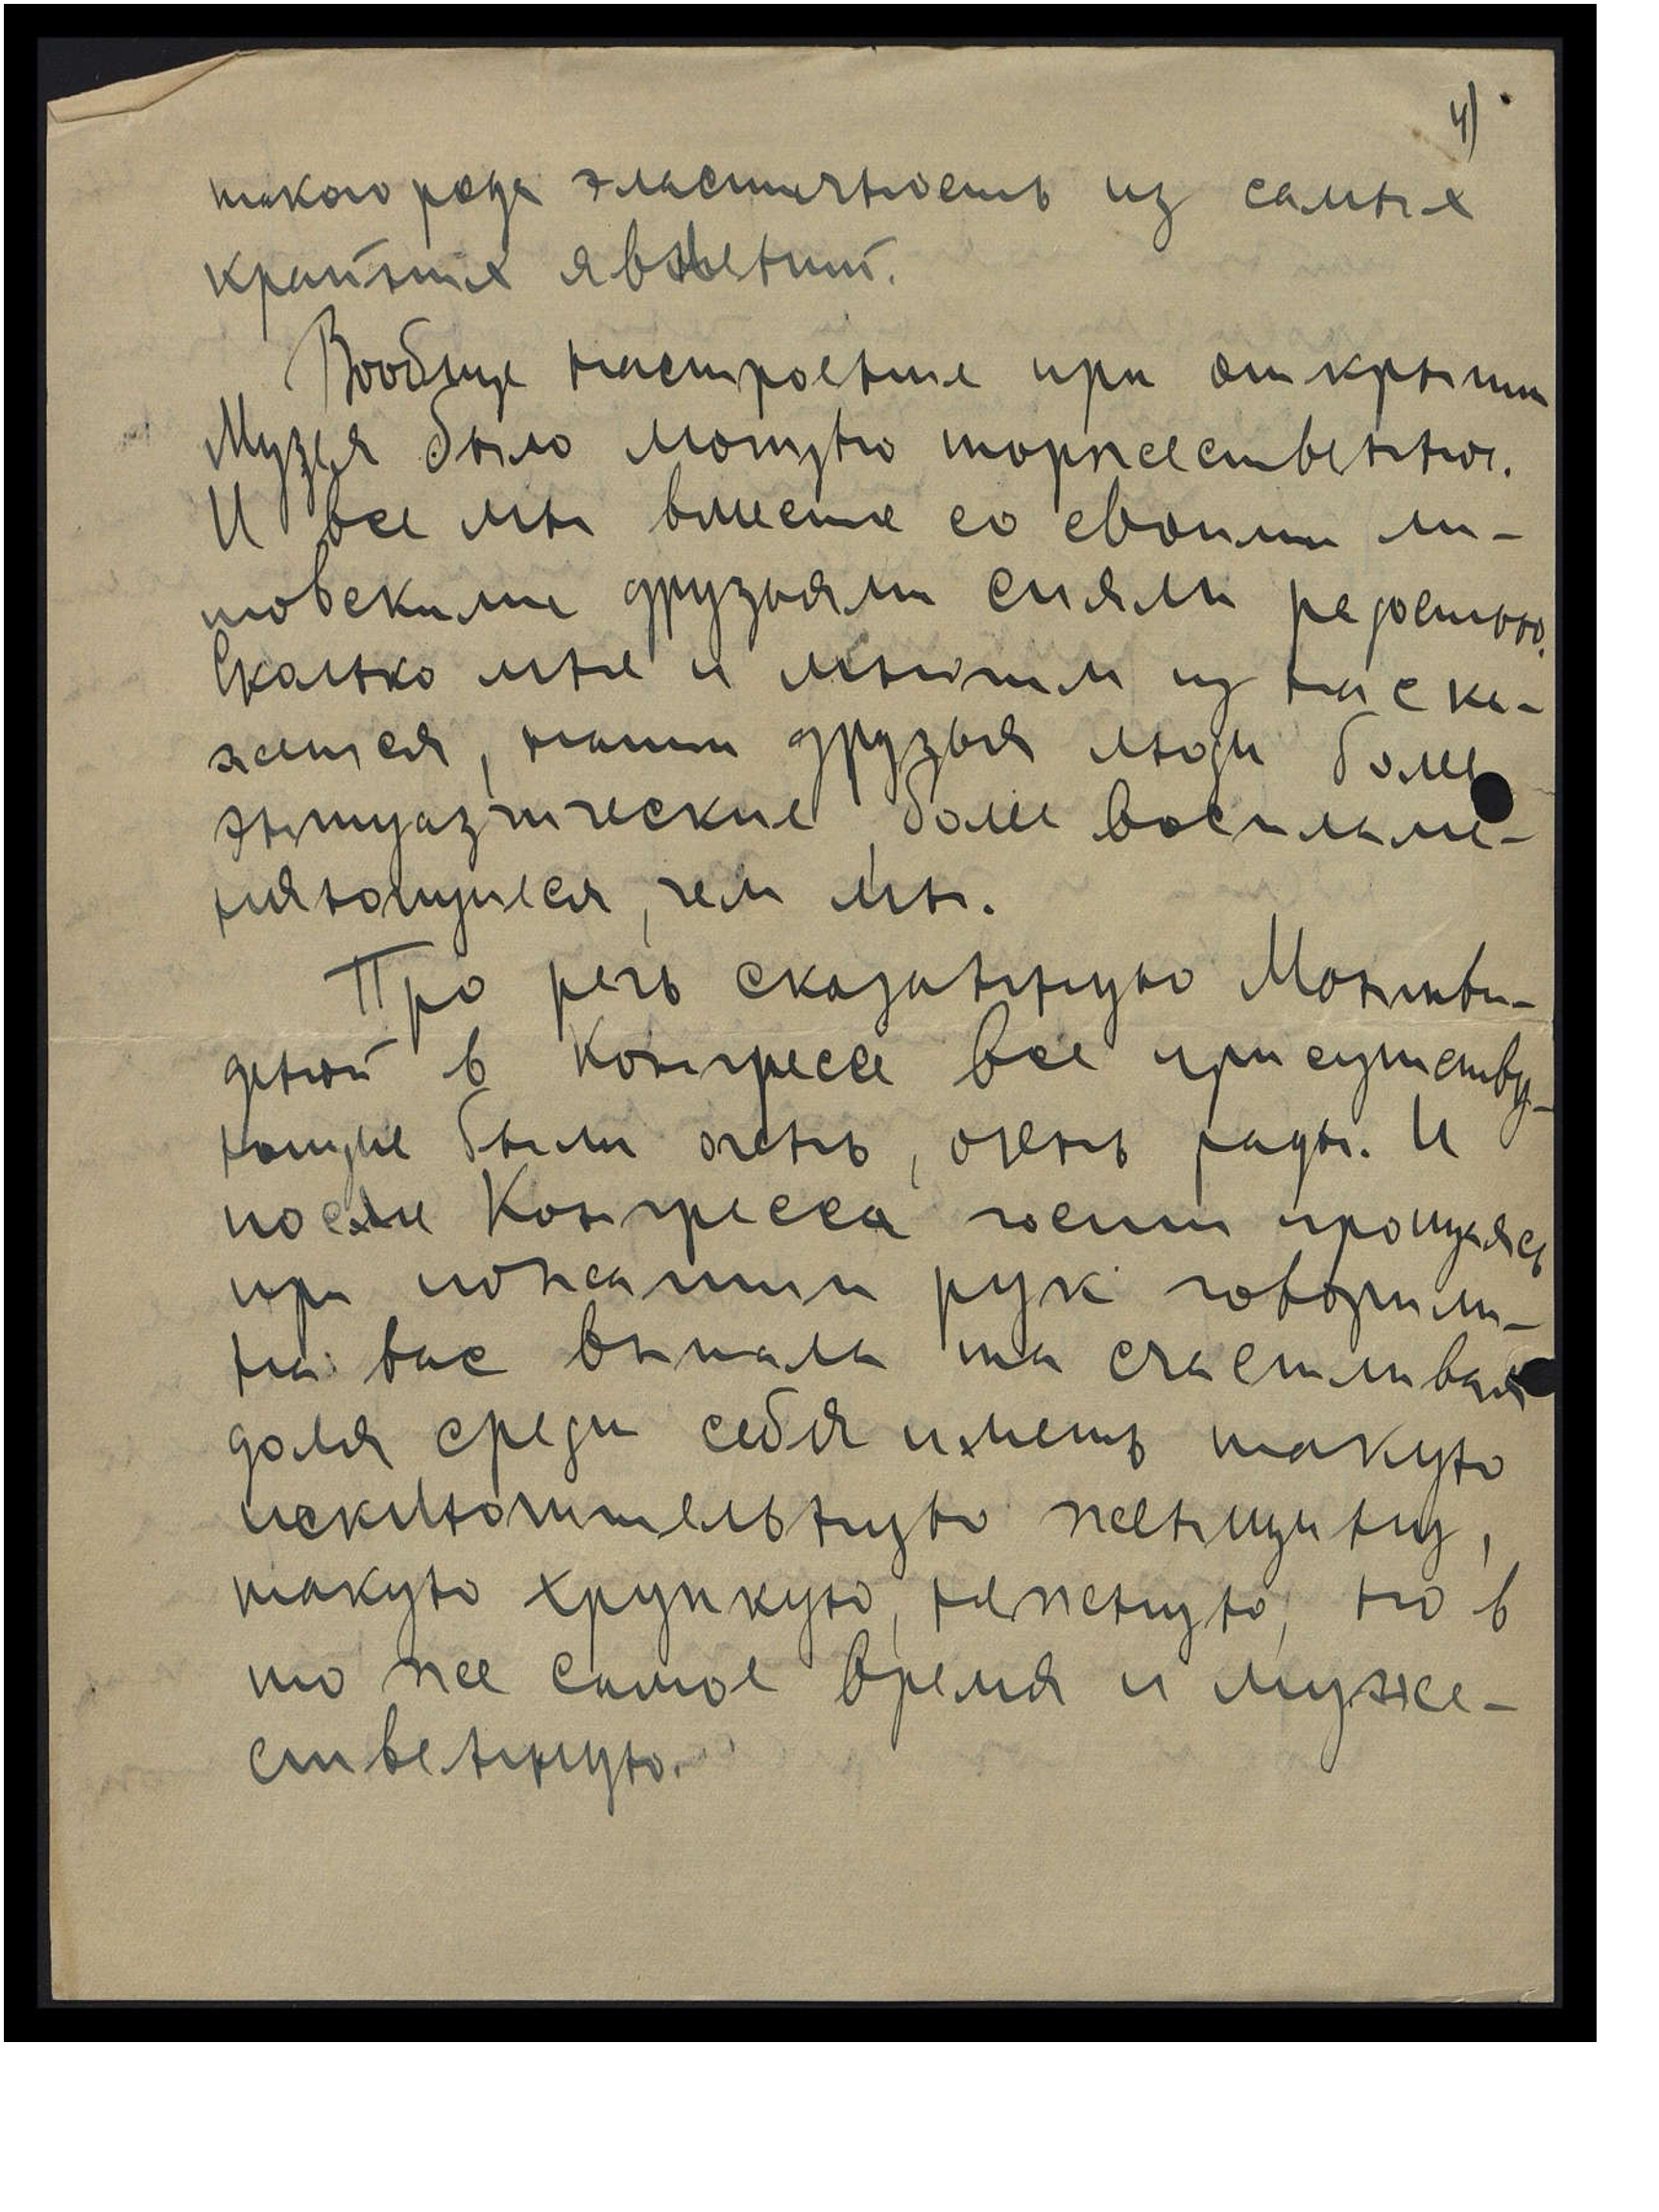 4)
такого рода эластичность из самых
крайних явлений.
Вообще настроение при открытии
Музея было мощно торжественное.
И все мы вместе со своими ли-
товскими друзьями сияли радостью.
Сколько мне и многим из нас ка-
жется, наши друзья люди более
энтузиатические, более воспламе-
няющиеся, чем мы.
Про речь сказанную Монтви-
деной в Конгрессе все присутству-
ющие были очень, очень рады. И
после Конгресса гости прощаясь
при пожатии рук говорили-
на вас выпала та счастливая
доля среди себя иметь такую
исключительную женщину,
такую хрупкую, нежную, но в
то же самое время и муже-
ственную.